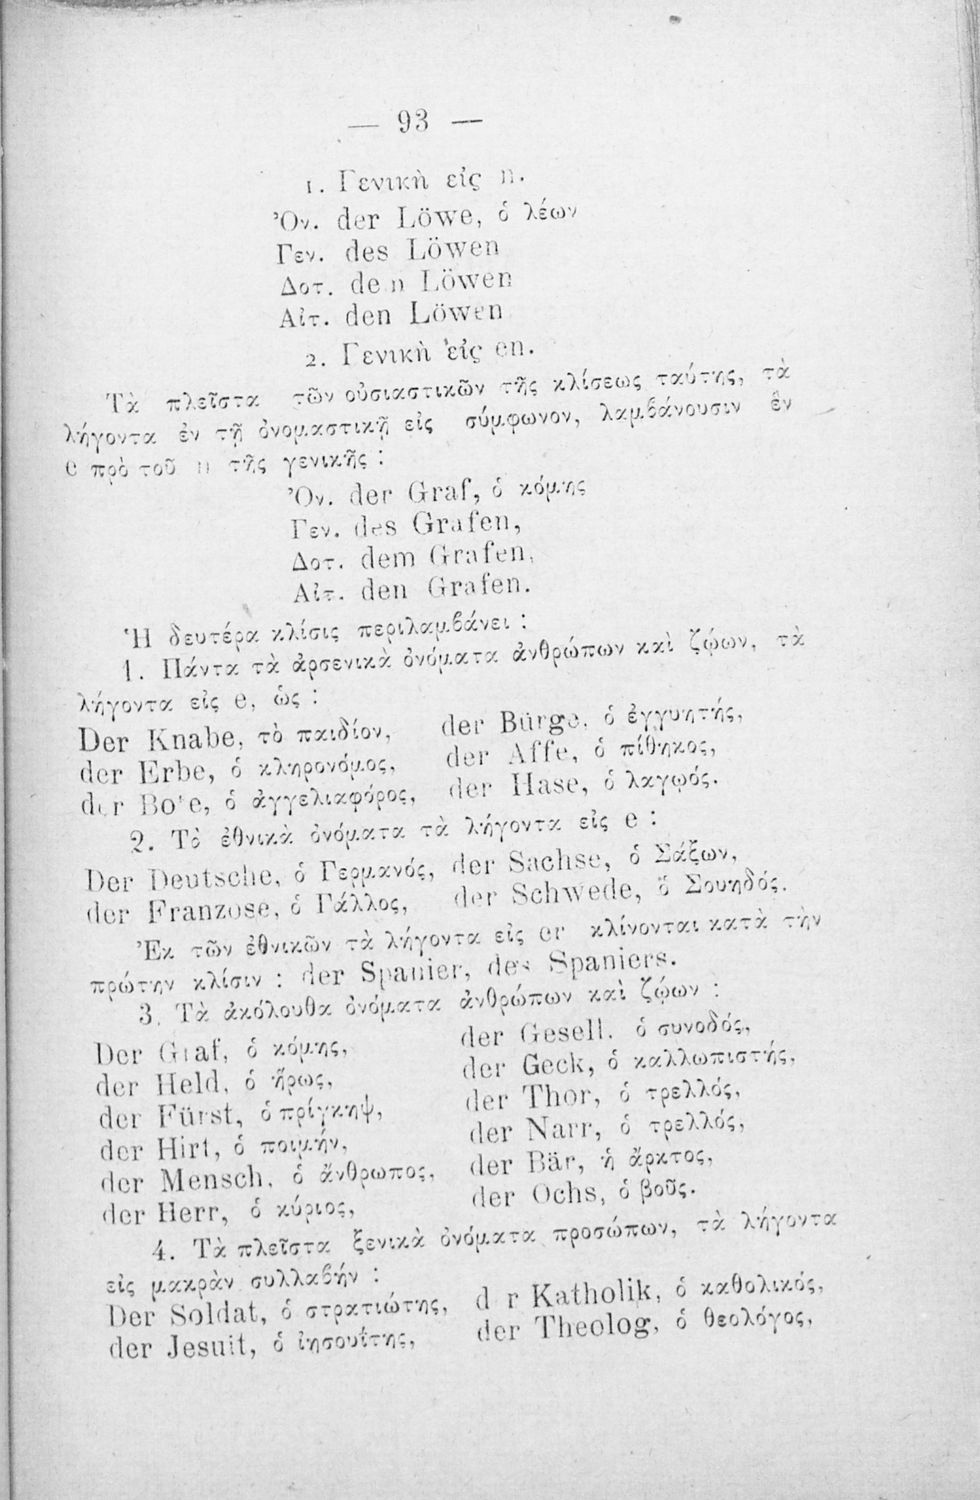 — 93 —
1. Γενικὴ εἰς n.
Ὀν. der Löwe, ὁ λέων
Γεν. des Löwen
Δοτ. den Löwen
Αἰτ. den Löwen
2. Γενικὴ εἰς en.
Τὰ πλεῖστα τῶν οὐσιαστικῶν τῆς κλίσεως ταύτης, τὰ
λήγοντα ἐν τῇ ὀνομαστικῇ εἰς σύμφωνον, λαμβάνουσιν ἓν
e πρὸ τοῦ n τῆς γενικῆς :
Ὀν. der Graf, ὁ κόμης
Γεν. des Grafen,
Δοτ. dem Grafen,
Αἰτ. den Grafen.
Ἡ δευτέρα κλίσις περιλαμβάνει :
1. Πάντα τὰ ἀρσενικὰ ὀνόματα ἀνθρώπων καὶ ζῴων, τὰ
λήγοντα εἰς e, ὡς :
Der Knabe, τὸ παιδίον, der Bürge, ὁ ἐγγυητής,
der Erbe, ὁ κληρονόμος, der Affe, ὁ πίθηκος,
der Bote, ὁ ἀγγελιαφόρος, der Hase, ὁ λαγῳός.
2. Τὸ ἐθνικὰ ὀνόματα τὰ λήγοντα εἰς e :
Der Deutsche, ὁ Γερμανός, der Sachse, ὁ Σάξων,
der Franzose, ὁ Γάλλος, der Schwede, ὁ Σουηδός.
Ἐκ τῶν ἐθνικῶν τὰ λήγοντα εἰς er κλίνονται κατὰ τὴν
πρώτην κλίσιν : der Spanier, des Spaniers.
3. Τὰ ἀκόλουθα ὀνόματα ἀνθρώπων καὶ ζῴων :
Der Graf, ὁ κόμης, der Gesell, ὁ συνοδός,
der Held, ὁ ἥρως, der Geck, ὁ καλλωπιστής,
der Fürst, ὁ πρίγκηψ, der Thor, ὁ τρελλός,
der Hirt, ὁ ποιμήν, der Narr, ὁ τρελλός,
der Mensch, ὁ ἄνθρωπος, der Bär, ἡ ἄρκτος,
der Herr, ὁ κύριος, der Ochs, ὁ βοῦς.
4. Τὰ πλεῖστα ξενικὰ ὀνόματα προσώπων, τὰ λήγοντα
εἰς μακρὰν συλλαβήν :
Der Soldat, ὁ στρατιώτης, d r Katholik, ὁ καθολικός,
der Jesuit, ὁ ἰησουΐτης, der Theolog, ὁ θεολόγος,